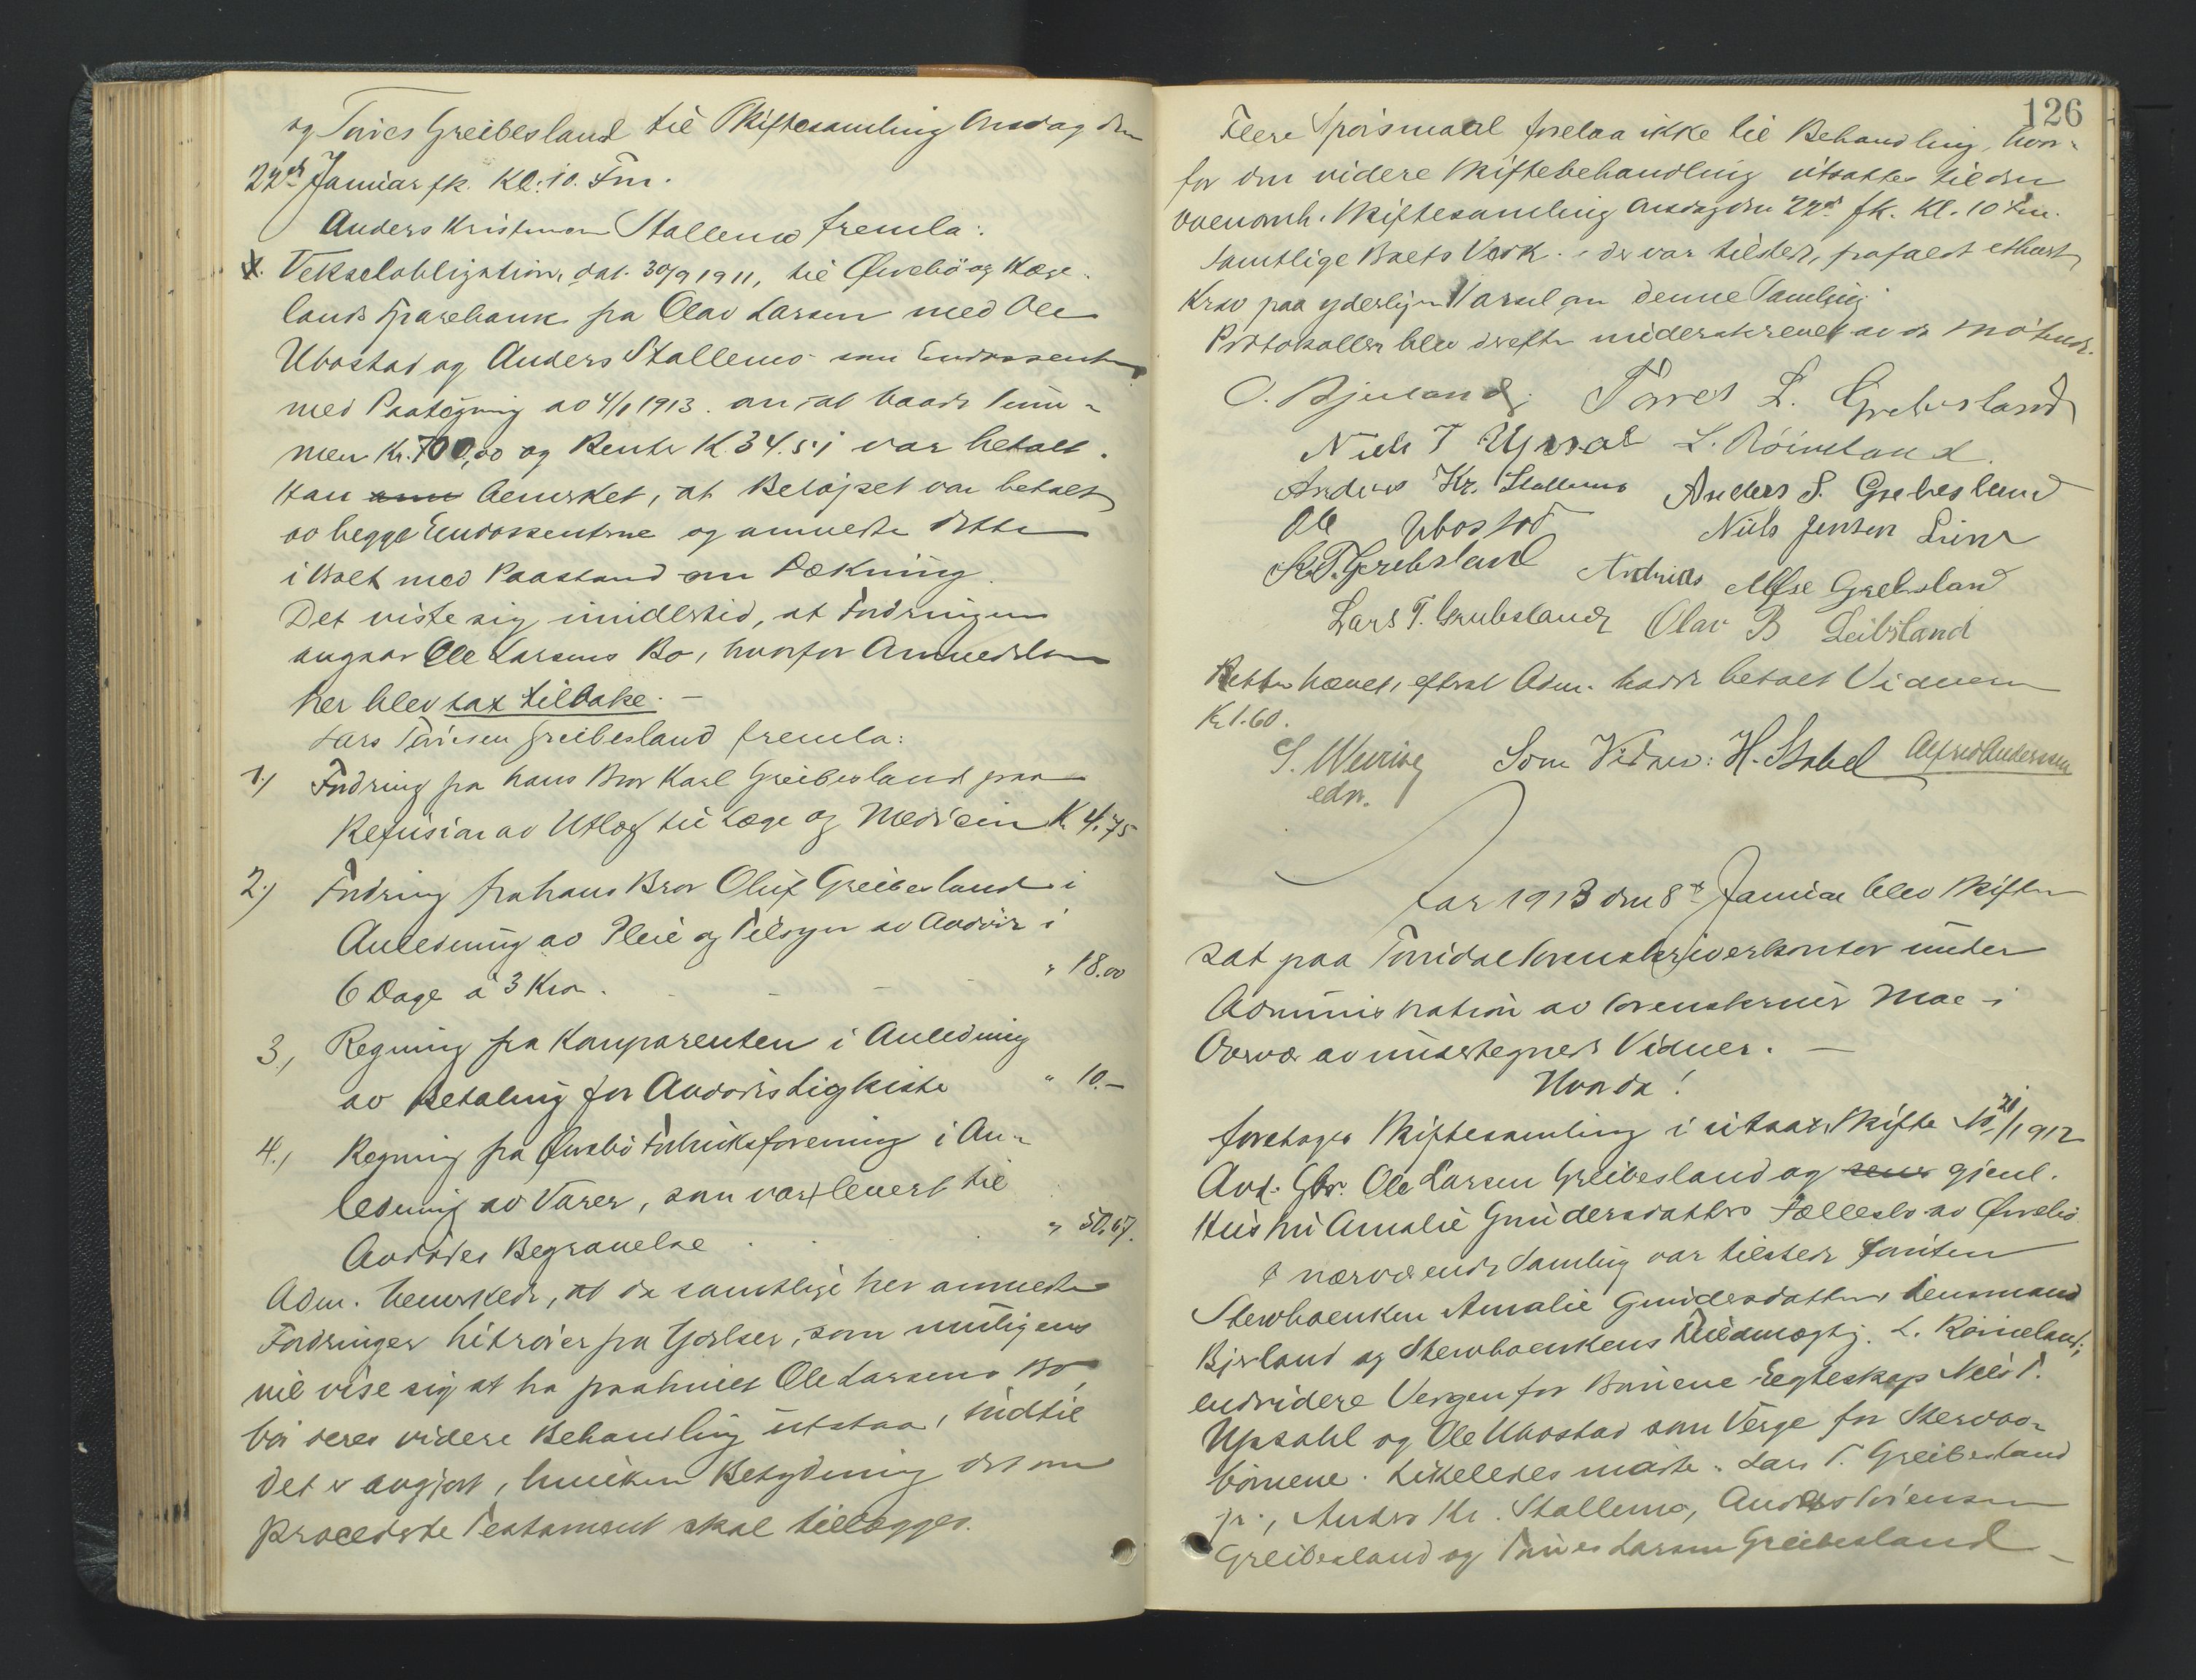 og Tories Greibesland til Skiftesamling Onsdag den
22de Januar fk. Kl: 10. Fm.
Anders Kristensen Stallemo fremla:
1. Vekselobligation, dat. 30/9 1911, til Øvrebø og Hæge-
lands Sparebank fra Olav Larsen med Ole
Ubostad og Anders Stallemo som Endossenter
med Paategning av 4/1 1913 om at baade Sum-
men Kr. 700,00 og Rente K. 34.51 var betalt.
Han bemerket, at Beløpet var betalt
av begge Endossentene og anmeldte dette
i Boet med Paastand om Dækning.
Det viste sig imidlertid, at Fordringen
angaar Ole Larsens Bo, hvorfor Anmeldelsen
her blev tat tilbake. -
Lars Toriesen Greibesland fremla:
1.) Fordring fra hans Bror Karl Greibesland paa
Refusion av Utlæg til Læge og Medicin K. 4.75
2.) Fordring fra hans Bror Oluf Greibesland i
Anledning av Pleie og Tilsyn av Avdøde i
6 Dage á 3 Kro. - - - " 18.00
3., Regning fra Komparenten i Anledning
av Betaling for Avdødes Ligkiste " 10.-
4., Regning fra Øvrebø Forbruksforening i An-
ledning av Varer, som var levert til
Avdødes Begravelse " 50.67.
Adm. bemerkede, at da samtlige her anmeldte
Fordringer hitrører fra Gjelder, som muligens
vil vise sig at ha paahvilet Ole Larsens Bo,
bør deres videre Behandling utstaa, indtil
det er avgjort, hvilken Betydning det om
procederte Testament skal tillægges.
126
Flere Spørsmaal forelaa ikke til Behandling, hvor-
for den videre Skiftebehandling utsattes til den
ovenomh. Skiftesamling Onsdag den 22de fk. Kl. 10 Fm.
Samtlige Boets Vedk. der var tilstede, frafaldt ethvert
Krav paa yderligere Varsel om denne Samling.
Protokollen blev derefter underskrevet av de møtende.
O. Bjerland. Tores L. Grebesland
Niels T Upsal L. Røineland.
Anders Kr. Stallemo Anders S. Grebesland
Ole Ubostad Niels Jensen Lien
K. T. Grebsland Andreas Grebsland
Lars T. Greibsland Olav B Leibsland
Retten hævet, efterat Adm. hadde betalt Vidnerne
Kr 1.60.
S. Weiring Som Vidner: H. Stabel Alfred Andersen
edsv.
Aar 1913 den 8de Januar blev Skifteret
sat paa Torridal Sorenskriverkontor under
Administration av Sorenskriver Moe i
Overvær av undertegnede Vidner. -
Hvorda!
foretages Skiftesamling i utsat Skifte No 21/1912
Avd. Gbr. Ole Larsen Greibesland og gjenl.
Hustru Amalie Gundersdatters Fællesbo av Øvrebø.
I nærværende Samling var tilstede foruten
Stervboenken Amalie Gundersdatter, Lensmand
Bjerland og Stervboenkens Fuldmægtig L. Røineland;
endvidere Vergen for Barnene Egteskap Niels T.
Upsahl og Ole Ubostad som Verge for Stervbo-
børnene. Likeledes møtte: Lars T. Greibesland
jr., Anders Kr. Stallemo, Anders Toriensen
Greibesland og Tories Larsen Greibesland -